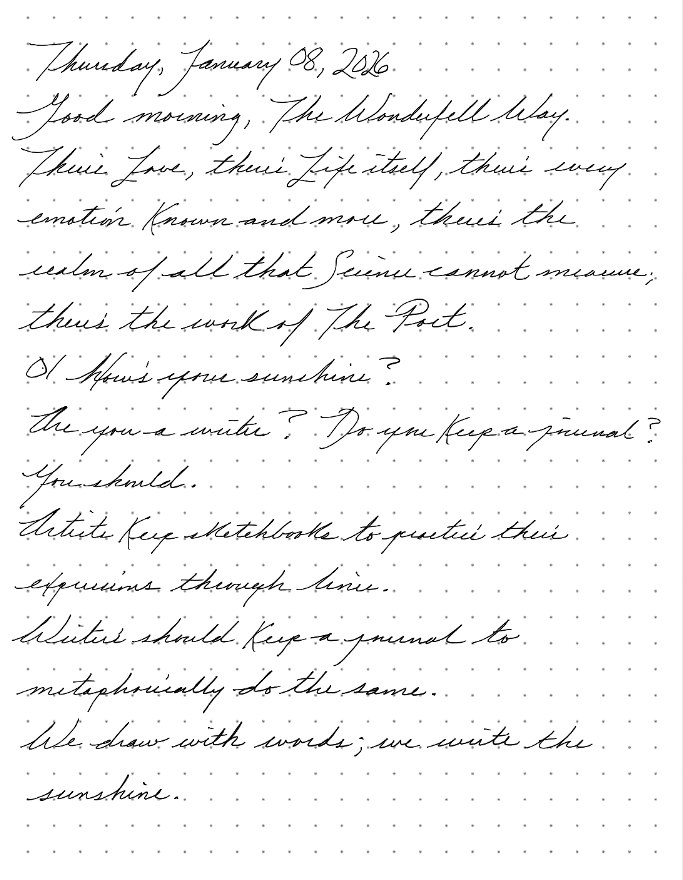 Thursday, January 08, 2026
Good morning, The Wonderfell Way.
There's Love, there's Life itself, there's every
emotion Known and more, there's the
realm of all that Science cannot measure;
there's the work of The Poet.
O! How's your sunshine?
Are you a writer? Do you Keep a journal?
You should.
Artists Keep sketchbooks to practice their
expressions through line.
Writers should Keep a journal to
metaphorically do the same.
We draw with words; we write the
sunshine.